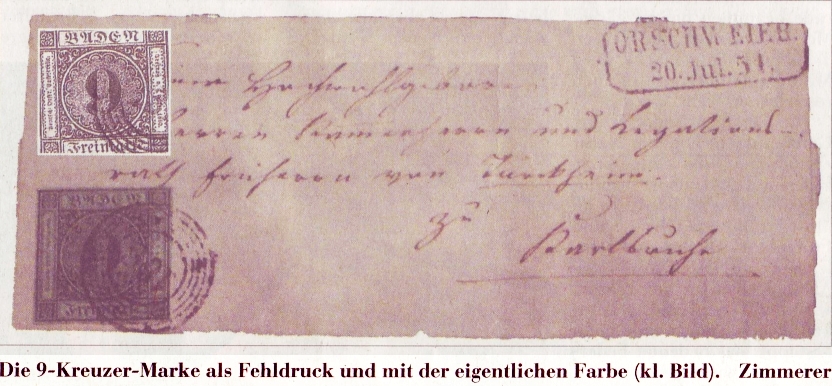 BADEN
9
Freimarke
ORSCHWEIER.
20. Jul. 51.
Hochwohlgeboren
Herren Kammerherrn und Legations-
rath Freiherrn von Türckheim.
zu
Karlsruhe
BADEN
9
Freimarke
Die 9-Kreuzer-Marke als Fehldruck und mit der eigentlichen Farbe (kl. Bild). Zimmerer